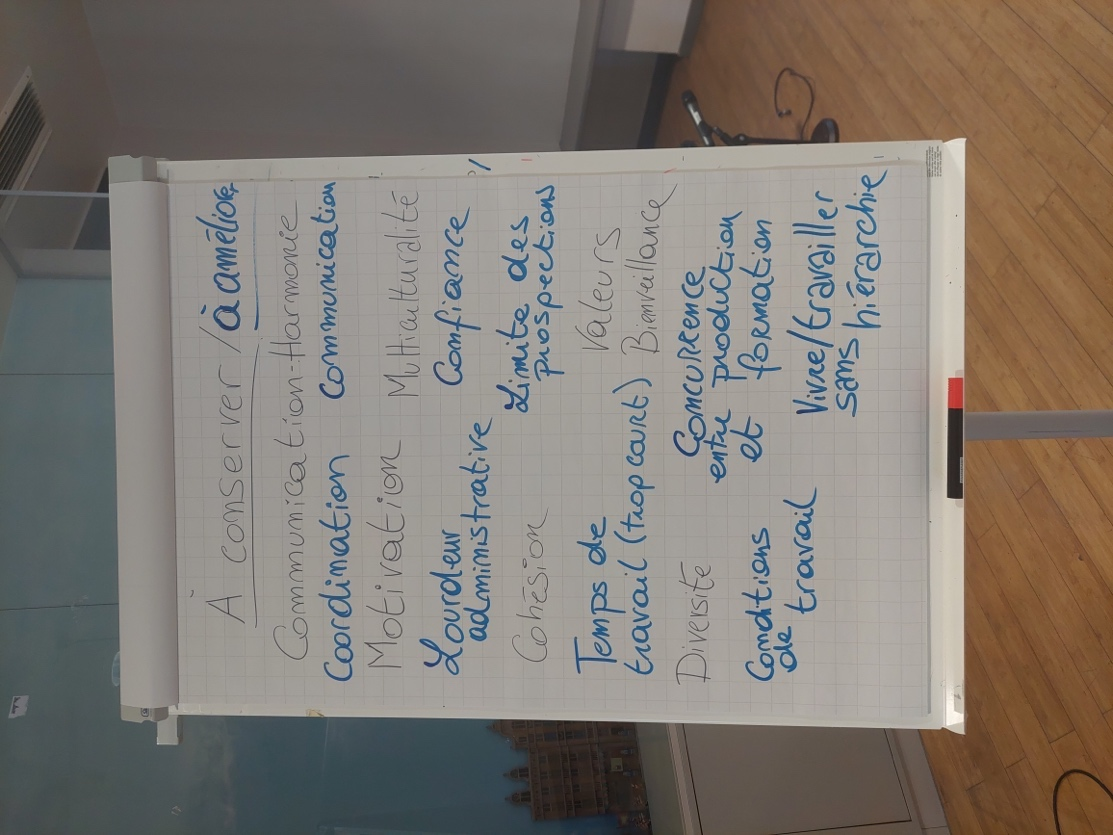 À conserver / à améliorer
Communication - Harmonie
Coordination communication
Motivation Multiculturalité
Lourdeur Confiance
administrative
Limite des
Cohésion prospections
Temps de Valeurs
travail (trop court) Bienveillance
Diversité Concurrence
entre production
Conditions et formation
de travail
Vivre/travailler
sans hiérarchie